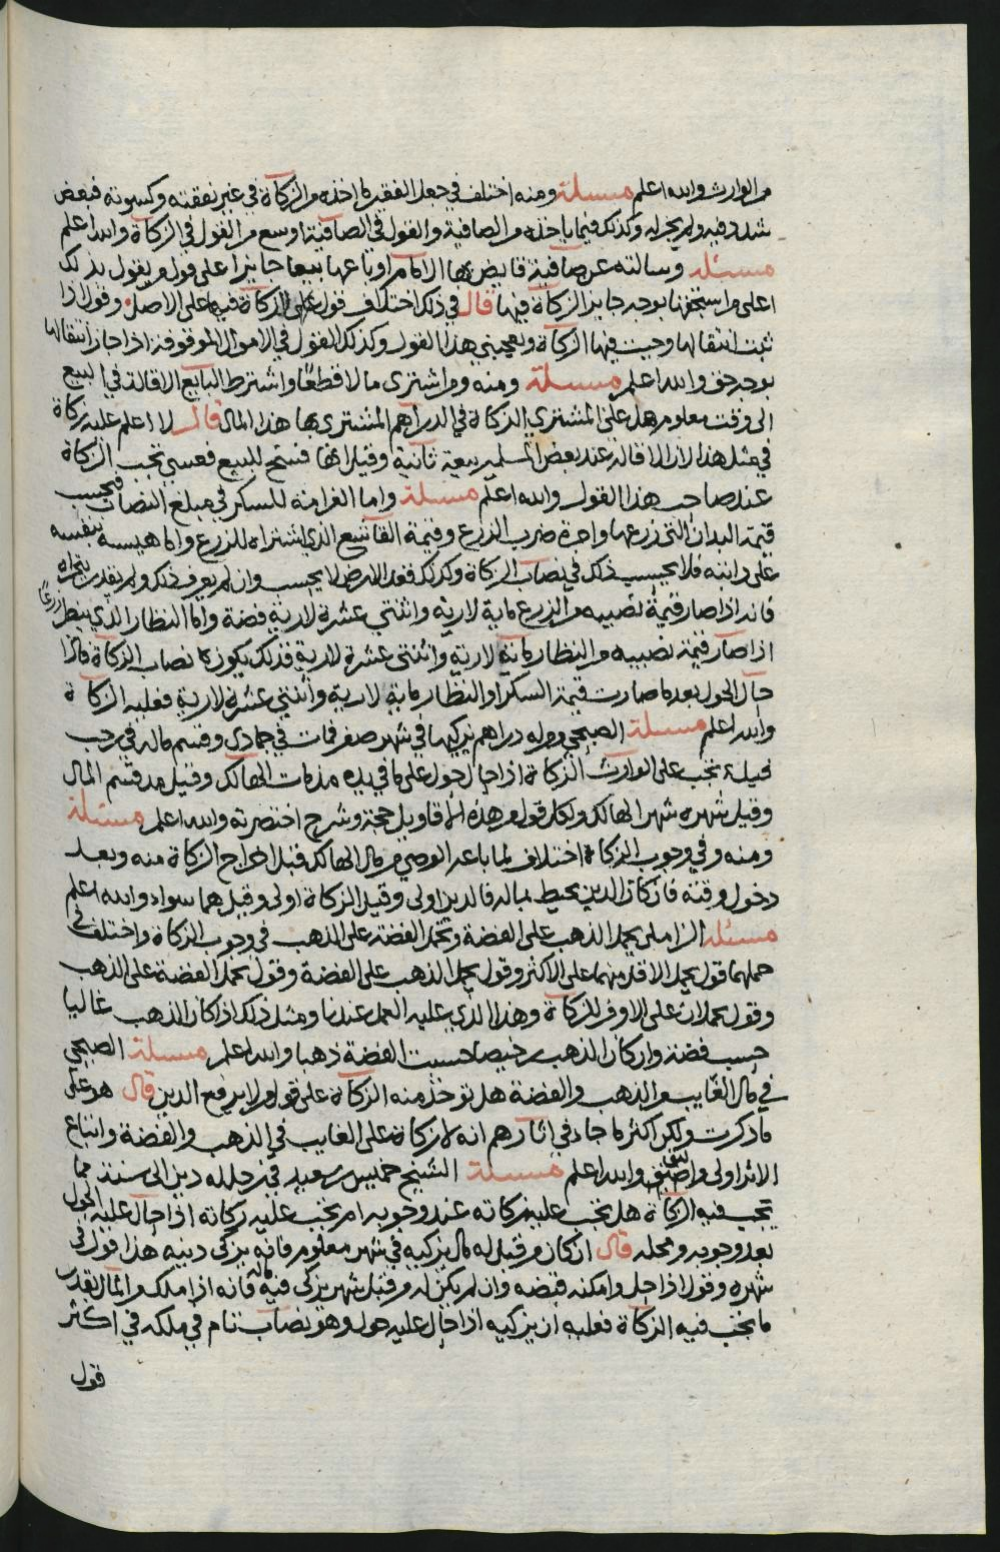 من الوارث والله اعلم مسئلة ومنه اختلف في جعل الفقير ما اخذه من الزكاة في غير نفقته وكسوته فبعض
شدد فيه ولم يجز له وكذلك فيما ياخذه من الصافية والقول في الصافية اوسع من القول في الزكاة والله اعلم
مسئلة وسالته عن صافية قايض بها الامام او باعها بيعا جايزا على قول من يقول بذلك
اعلى من استحقها بوجه جايز الزكاة فيها قال في ذلك اختلاف قول الزكاة فيها على الاصل وقول اذا
ثبت انتقالها وجبت فيها الزكاة ويعجبني هذا القول وكذلك القول في الاموال الموقوفة اذا جاز انتقالها
بوجه حق والله اعلم مسئلة ومنه ومن اشترى مالا قطعا واشترط البايع الاقالة في البيع
الى وقت معلوم هل على المشتري الزكاة في الدراهم المشترى بها هذا المال قال لا اعلم عليه زكاة
في مثل هذا لان الاقالة عند بعض المسلمين بيعة ثانية وقيل انها فسخ للبيع فعسى تجب الزكاة
عند صاحب هذا القول والله اعلم مسئلة واما الغرامة للسكر في مبلغ النصاب فيحسب
قيمة البدان التي زرعها واجرة ضرب الزرع وقيمة القاشع الذي اشتراه للزرع واما هيسه بنفسه
على دابته فلا يحسب ذلك في نصاب الزكاة وكذلك قعد الارض لا يحسب وان لم يعرف ذلك ولم يقدر يتحراه
فانه اذا صار قيمة نصيبه من الزرع ماية لارية واثنتي عشرة لارية فضة واما النظار الذي ينظر زرعا
اذا صار قيمة نصيبه من النظار ماية لارية واثنتي عشرة لارية فذلك يكون نصاب الزكاة فاذا
حال الحول بعد ما صارت قيمة السكر او النظار ماية لارية واثنتي عشرة لارية فعليه الزكاة
والله اعلم مسئلة الصبحي ومن له دراهم يزكيها في شهر صفر فمات في جمادى وقسم ماله في رجب
تجب على الوارث الزكاة اذا حال حول على ما في يده مذ مات الهالك وقيل مذ قسم المال
وقيل شهره شهر الهالك ولكل قول من هذه الاقاويل حجة وشرح اختصرته والله اعلم مسئلة
ومنه وفي وجوب الزكاة اختلاف لما باعه الوصي من مال الهالك قبل اخراج الزكاة منه وبعد
دخول وقته فان كان الدين يحيط بماله فالدين اولى وقيل الزكاة اولى وقيل هما سواء والله اعلم
مسئلة الزاملي يحمل الذهب على الفضة وتحمل الفضة على الذهب في وجوب الزكاة واختلف في
حملهما قول يحمل الاقل منهما على الاكثر وقول يحمل الذهب على الفضة وقول تحمل الفضة على الذهب
وقول يحملان على الاوفر للزكاة وهذا الذي عليه العمل عندنا ومثل ذلك اذا كان الذهب غاليا
حسب فضة وان كان الذهب رخيصا حسبت الفضة ذهبا والله اعلم مسئلة الصبحي
في مال الغايب من الذهب والفضة هل توخذ منه الزكاة على قول من لا يرفع الدين قال هو على
ما ذكرت ولكن اكثر ما جاء في اثارهم انه لا زكاة على الغايب في الذهب والفضة واتباع
الاثر اولى والله اعلم مسئلة الشيخ خميس بن سعيد فيمن حل له دين الى سنة مما
تجب فيه الزكاة هل تجب عليه زكاته عند وجوبه ام تجب عليه زكاته اذا حال عليه الحول
بعد وجوبه ومحله قال ان كان من قبل له مال يزكيه في شهر معلوم فانه يزكي دينه هذا قول في
شهره وقول اذا حل وامكنه قبضه وان لم يكن له من قبل شهر يزكي فيه ماله فانه اذا ملك من المال بقدر
ما تجب فيه الزكاة فعليه ان يزكيه اذا حال عليه حول وهو نصاب تام في ملكه في اكثر
قول